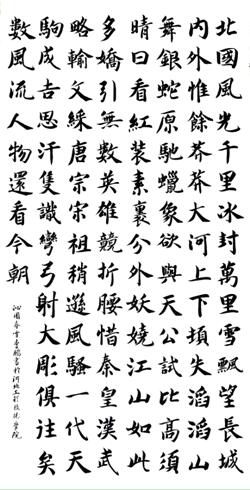 北國風光千里冰封萬里雪飄望長城
內外惟餘莽莽大河上下頓失滔滔山
舞銀蛇原馳蠟象欲與天公試比高須
晴日看紅裝素裹分外妖嬈江山如此
多嬌引無數英雄競折腰惜秦皇漢武
略輸文綵唐宗宋祖稍遜風騷一代天
駒成吉思汗隻識彎弓射大彫俱往矣
數風流人物還看今朝
沁園春雪 書於河北 學院